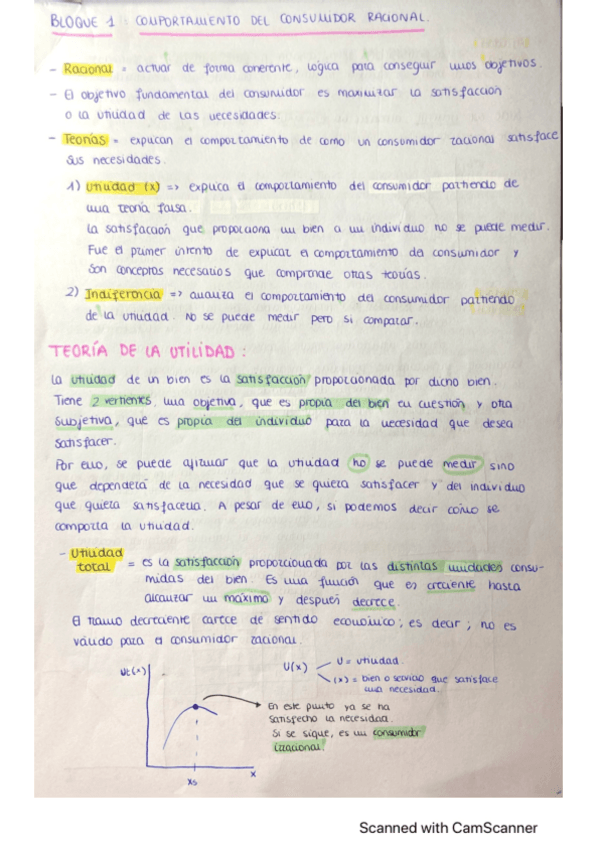 BLOQUE 1 : COMPORTAMIENTO DEL CONSUMIDOR RACIONAL.
- Racional = actuar de forma coherente, lógica para conseguir unos objetivos.
- El objetivo fundamental del consumidor es maximizar la satisfacción
o la utilidad de las necesidades.
- Teorías = explican el comportamiento de como un consumidor racional satisface
sus necesidades.
1) Utilidad (x) => explica el comportamiento del consumidor partiendo de
una teoría falsa.
La satisfacción que proporciona un bien a un individuo no se puede medir.
Fue el primer intento de explicar el comportamiento del consumidor y
son conceptos necesarios que comprende otras teorías.
2) Indiferencia => analiza el comportamiento del consumidor partiendo
de la utilidad. No se puede medir pero si comparar.
TEORÍA DE LA UTILIDAD :
La utilidad de un bien es la satisfacción proporcionada por dicho bien.
Tiene 2 vertientes, una objetiva, que es propia del bien en cuestión y otra
subjetiva, que es propia del individuo para la necesidad que desea
satisfacer.
Por ello, se puede afirmar que la utilidad no se puede medir sino
que dependerá de la necesidad que se quiera satisfacer y del individuo
que quiera satisfacerla. A pesar de ello, si podemos decir cómo se
comporta la utilidad.
- Utilidad total = es la satisfacción proporcionada por las distintas unidades consu-
midas del bien. Es una función que es creciente hasta
alcanzar un máximo y después decrece.
El tramo decreciente carece de sentido económico; es decir; no es
válido para el consumidor racional.
Ut(x)
U(x)
U = utilidad.
(x) = bien o servicio que satisface
una necesidad.
En este punto ya se ha
satisfecho la necesidad.
Si se sigue, es un consumidor
irracional.
x
xs
Scanned with CamScanner